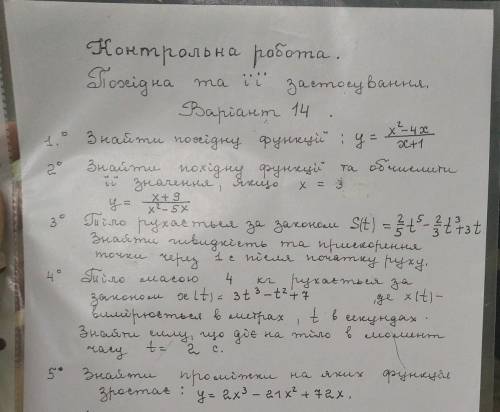 Контрольна робота.
Похідна та її застосування.
Варіант 14.
1.° Знайти похідну функції: y = (x²-4x)/(x+1)
2° Знайти похідну функції та обчислити
її значення, якщо x = 3
y = (x+9)/(x²-5x)
3° Тіло рухається за законом S(t) = 2/5 t⁵ - 2/3 t³ + 3t
Знайти швидкість та прискорення
точки через 1 с після початку руху.
4° Тіло масою 4 кг рухається за
законом x(t) = 3t³ - t² + 7, де x(t) -
вимірюється в метрах, t в секундах.
Знайти силу, що діє на тіло в момент
часу t = 2 с.
5° Знайти проміжки на яких функція
зростає: y = 2x³ - 21x² + 72x.